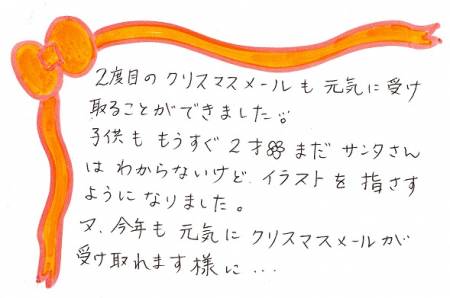 2度目のクリスマスメールも元気に受け
取ることができました。
子供も もうすぐ2才 まだ サンタさん
は わからないけど、イラストを 指さす
ようになりました。
又、今年も 元気に クリスマスメールが
受け取れます様に…